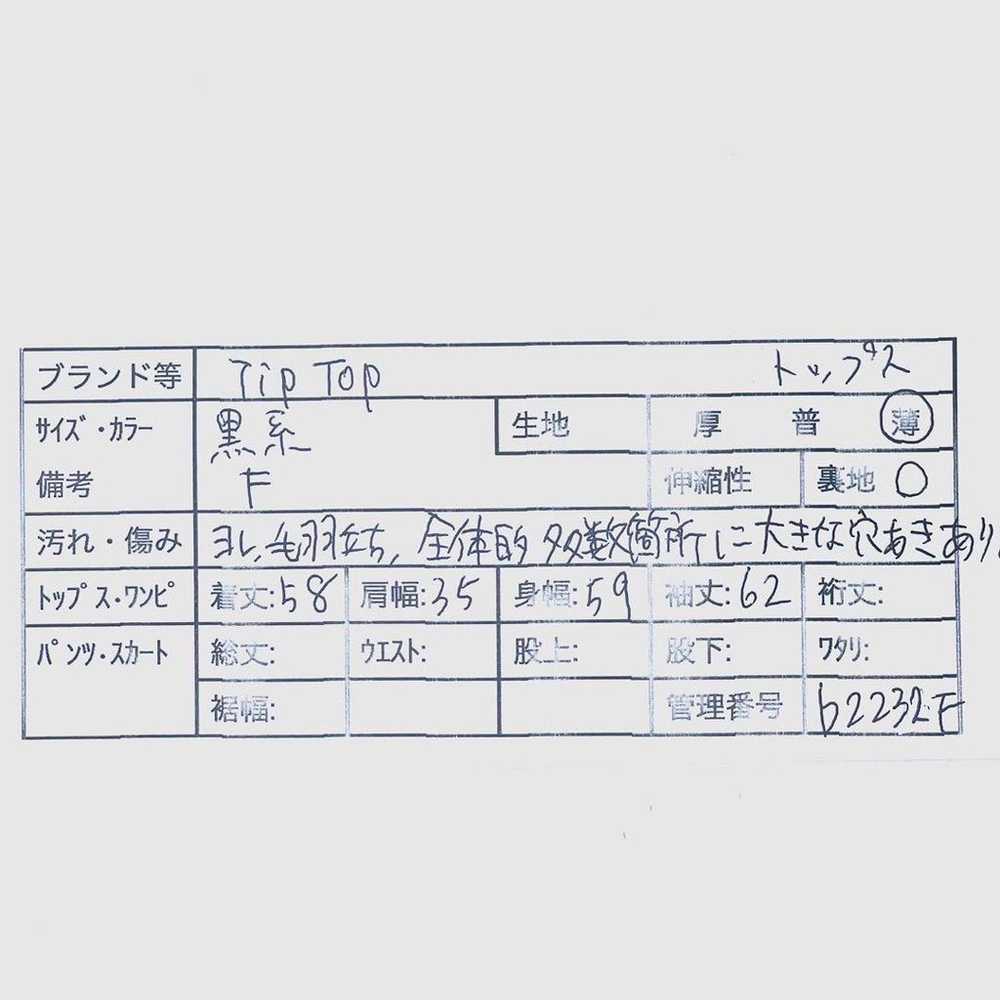 ブランド等 Tip Top トップス
サイズ・カラー 黒系 生地 厚 普 薄
備考 F 伸縮性 裏地 ○
汚れ・傷み ヨレ、毛羽立ち、全体的多数箇所に大きな穴あきあり。
トップス・ワンピ 着丈:58 肩幅:35 身幅:59 袖丈:62 裄丈:
パンツ・スカート 総丈: ウエスト: 股上: 股下: ワタリ:
裾幅: 管理番号 b2232F